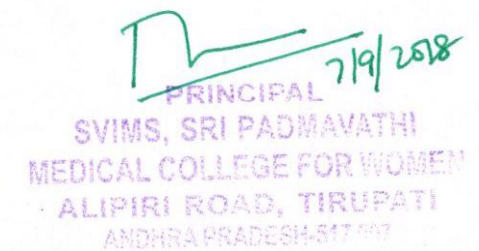 7/9/2018
PRINCIPAL
SVIMS, SRI PADMAVATHI
MEDICAL COLLEGE FOR WOMEN
ALIPIRI ROAD, TIRUPATI
ANDHRA PRADESH-517 507